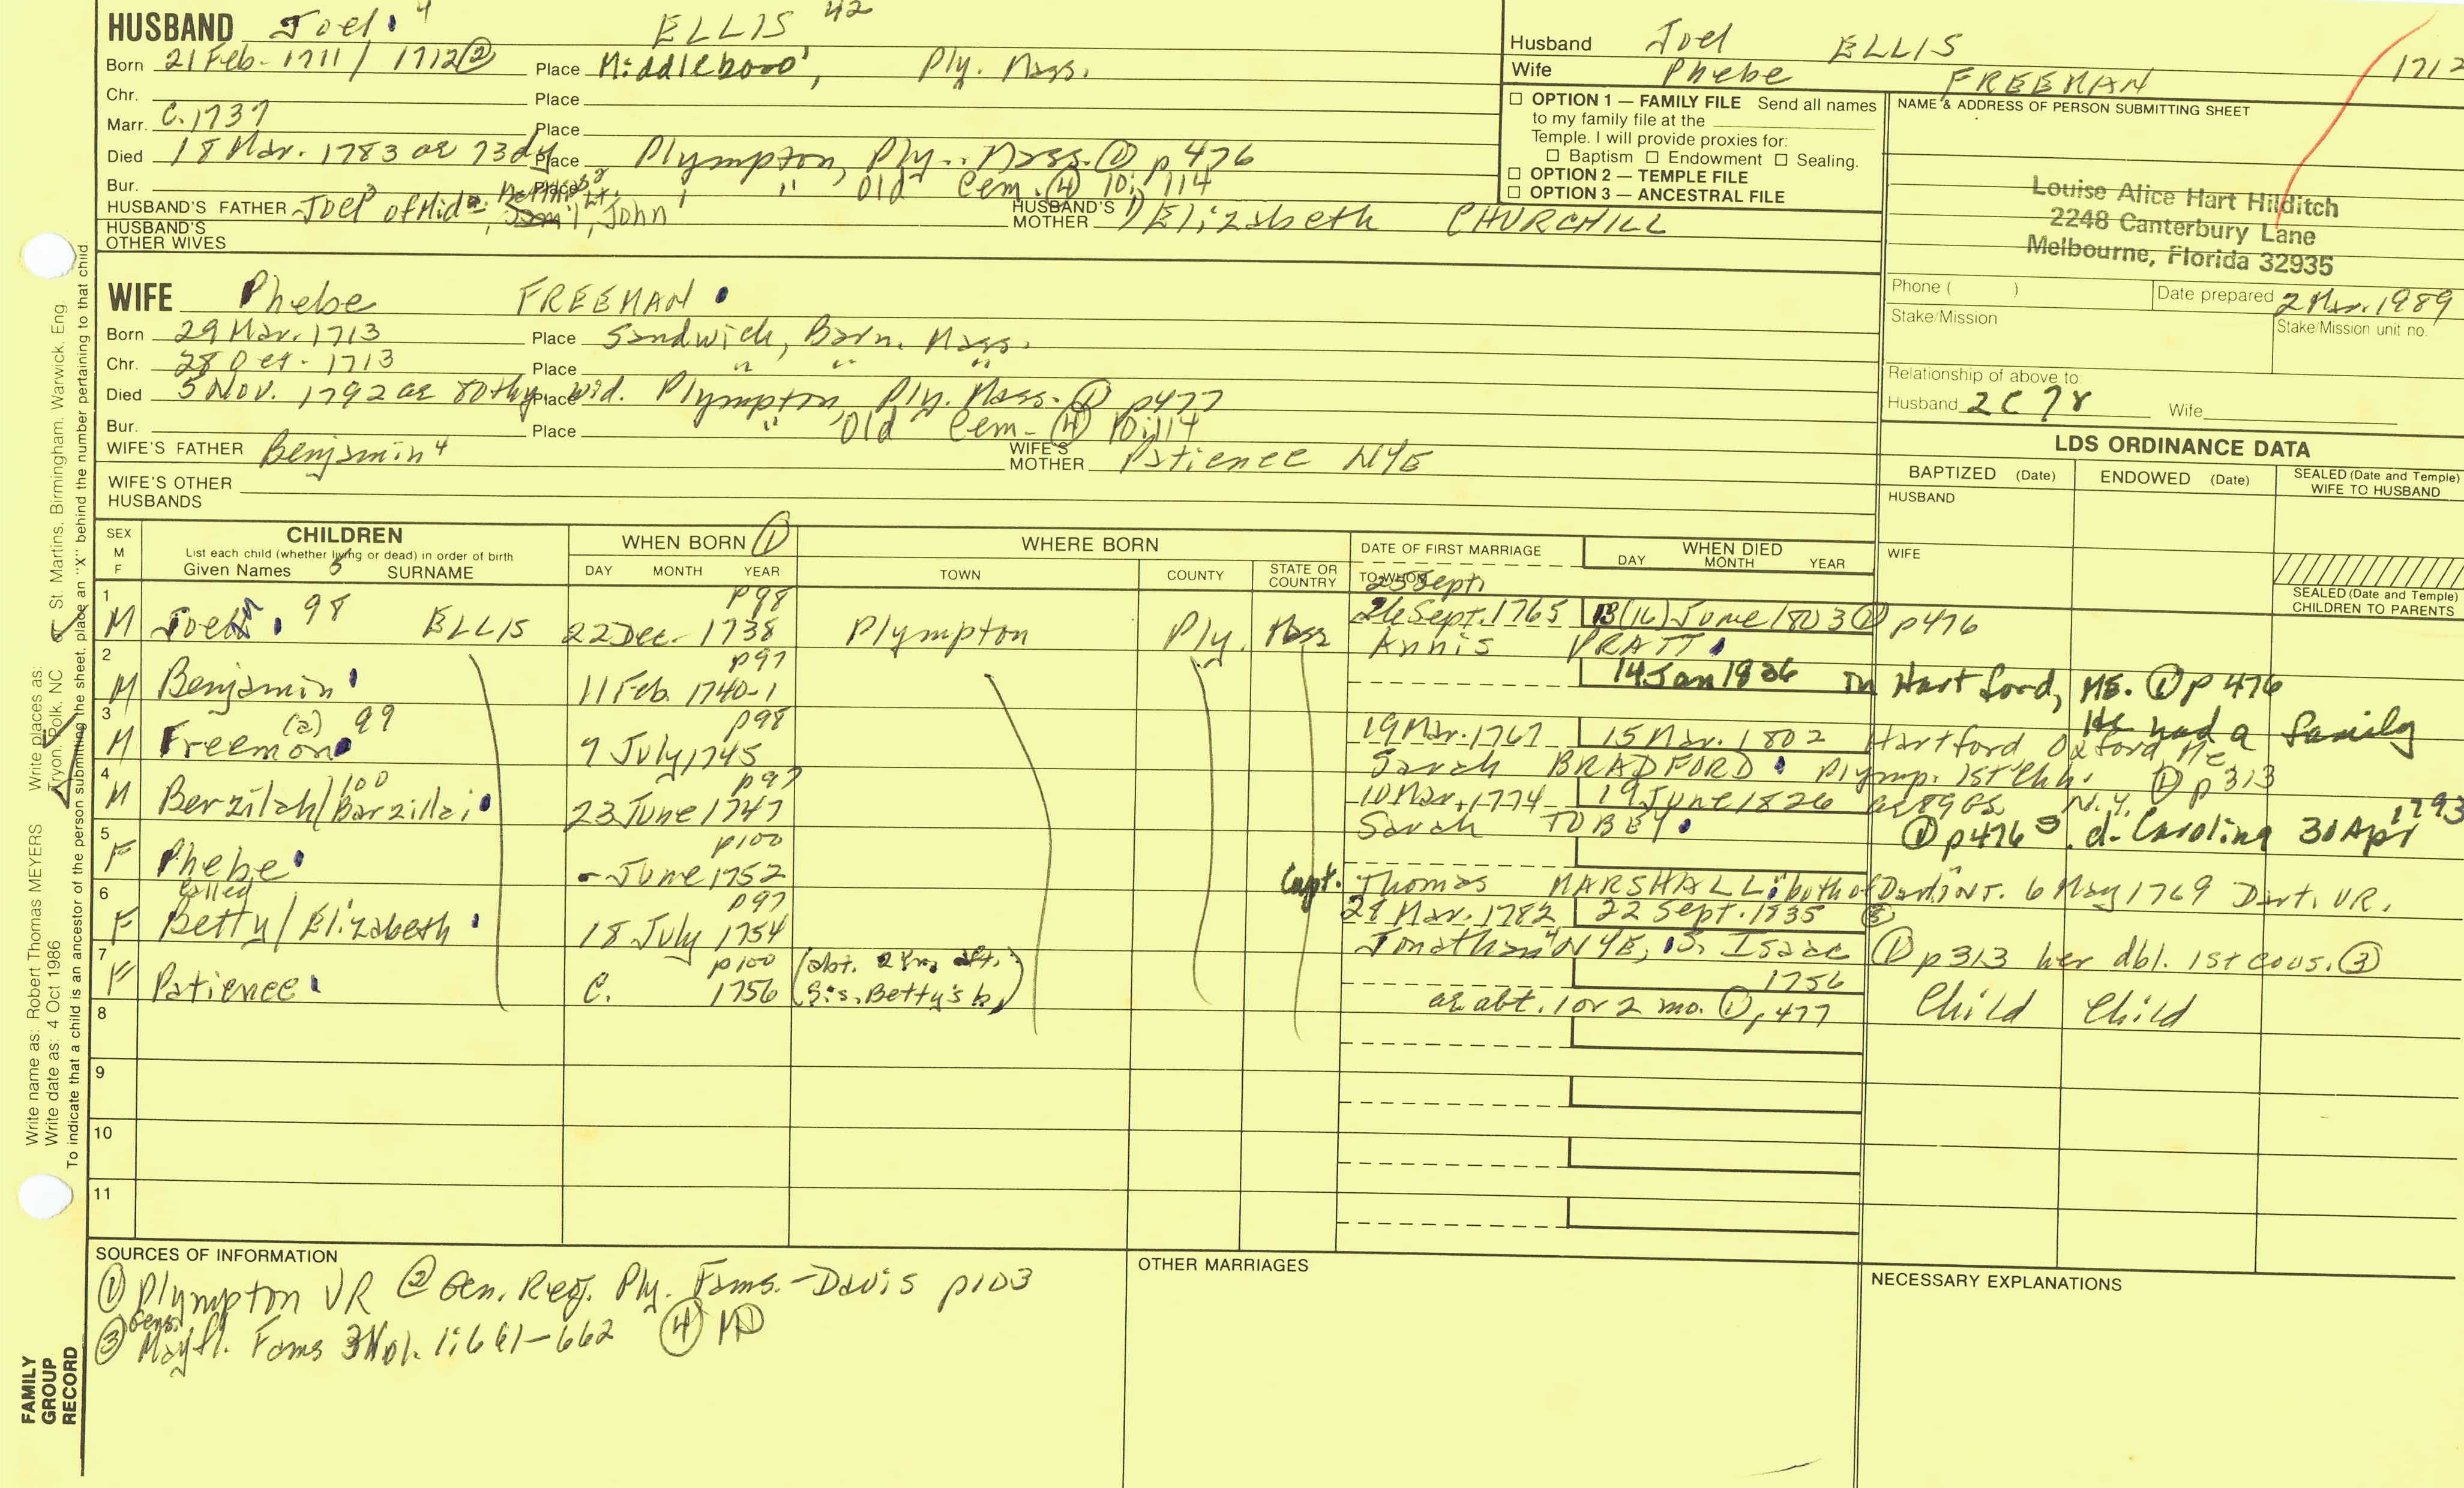 HUSBAND Joel 4 ELLIS 42
Born 21 Feb. 1711 / 1712 ② Place Middleboro', Ply. Mass.
Chr. Place
Marr. C. 1737 Place
Died 18 Mar. 1783 ae 73dy Place Plympton, Ply. Mass. ① p476
Bur. Place " Old Cem. ④ 10:114
HUSBAND'S FATHER Joel of Mid. John HUSBAND'S MOTHER Elizabeth CHURCHILL
HUSBAND'S OTHER WIVES
WIFE Phebe FREEMAN
Born 29 Mar. 1713 Place Sandwich, Barn. Mass.
Chr. 28 Oct. 1713 Place " " "
Died 5 Nov. 1792 ae 80thy Place wid. Plympton, Ply. Mass. ① p477
Bur. Place " Old Cem. ④ 10:114
WIFE'S FATHER Benjamin 4 WIFE'S MOTHER Patience NYE
WIFE'S OTHER HUSBANDS
Husband Joel ELLIS 1712
Wife Phebe FREEMAN
☐ OPTION 1 — FAMILY FILE Send all names
to my family file at the
Temple. I will provide proxies for:
☐ Baptism ☐ Endowment ☐ Sealing.
☐ OPTION 2 — TEMPLE FILE
☐ OPTION 3 — ANCESTRAL FILE
NAME & ADDRESS OF PERSON SUBMITTING SHEET
Louise Alice Hart Hilditch
2248 Canterbury Lane
Melbourne, Florida 32935
Phone ( ) Date prepared 2 Mar. 1989
Stake/Mission Stake/Mission unit no.
Relationship of above to:
Husband 2C7r Wife
LDS ORDINANCE DATA
BAPTIZED (Date) ENDOWED (Date) SEALED (Date and Temple) WIFE TO HUSBAND
HUSBAND
WIFE
SEALED (Date and Temple) CHILDREN TO PARENTS
SEX M F CHILDREN WHEN BORN ① WHERE BORN DATE OF FIRST MARRIAGE WHEN DIED
List each child (whether living or dead) in order of birth
Given Names 5 SURNAME DAY MONTH YEAR TOWN COUNTY STATE OR COUNTRY TO WHOM DAY MONTH YEAR
25 Sept
1 M Joel 98 ELLIS p98 22 Dec. 1738 Plympton Ply. Mass 26 Sept. 1765 13(16) June 1803 ① p476
Annis PRATT
2 M Benjamin p97 11 Feb. 1740-1 14 Jan 1836 in Hartford, ME. ① p476
He had a family
3 M Freemon (a) 99 p98 7 July 1745 19 Mar. 1767 15 Mar. 1802 Hartford Oxford, Me.
Sarah BRADFORD Plymp. 1st Chh. ① p313
4 M Berzilah/Barzillai 100 p97 23 June 1747 10 Mar. 1774 19 June 1826 ae 89 GS. N.Y.
Sarah TOBEY ① p476 . d. Carolina 30 Apr 1793
5 F Phebe p100 - June 1752
Capt. Thomas MARSHALL: both of Dart. int. 6 May 1769 Dart. VR.
6 F called Betty/Elizabeth p97 18 July 1754 28 Mar. 1782 22 Sept. 1835 ③
Jonathan 4 NYE, s. Isaac ① p313 her dbl. 1st cous. ③
7 F Patience p100 C. 1756 (abt. 2 yrs. aft. sis. Betty's b.) 1756
ae abt. 1 or 2 mo. ① p477 Child Child
8
9
10
11
SOURCES OF INFORMATION
① Plympton VR ② Gen. Reg. Ply. Fams. - Davis p103
③ Gens. Mayfl. Fams 3Vol. 1:661-662 ④ MD
OTHER MARRIAGES
NECESSARY EXPLANATIONS
Write name as: Robert Thomas MEYERS Write places as: Tryon, Polk, NC or St. Martins, Birmingham, Warwick, Eng
Write date as: 4 Oct 1986
To indicate that a child is an ancestor of the person submitting the sheet, place an "X" behind the number pertaining to that child
FAMILY GROUP RECORD